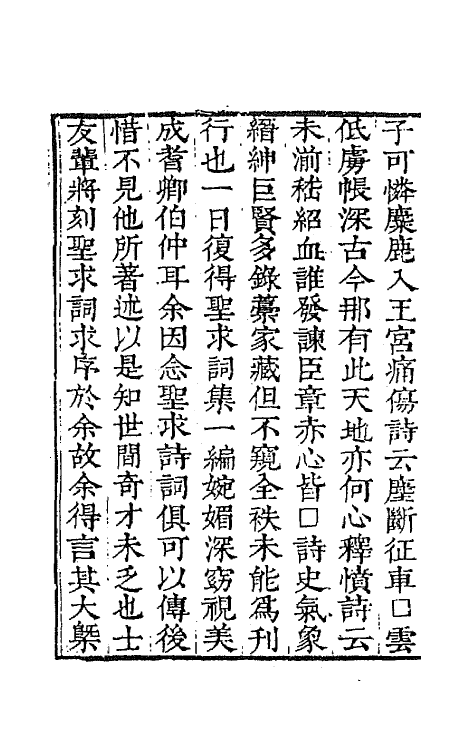 子可憐麋鹿入王宮痛傷詩云塵斷征車□雲
低虜帳深古今那有此天地亦何心釋憤詩云
未湔嵇紹血誰發諫臣章赤心皆□詩史氣象
縉紳巨賢多錄藁家藏但不窺全袟未能爲刊
行也一日復得聖求詞集一編婉媚深窈視美
成耆卿伯仲耳余因念聖求詩詞俱可以傳後
惜不見他所著述以是知世間奇才未乏也士
友輩將刻聖求詞求序於余故余得言其大槩